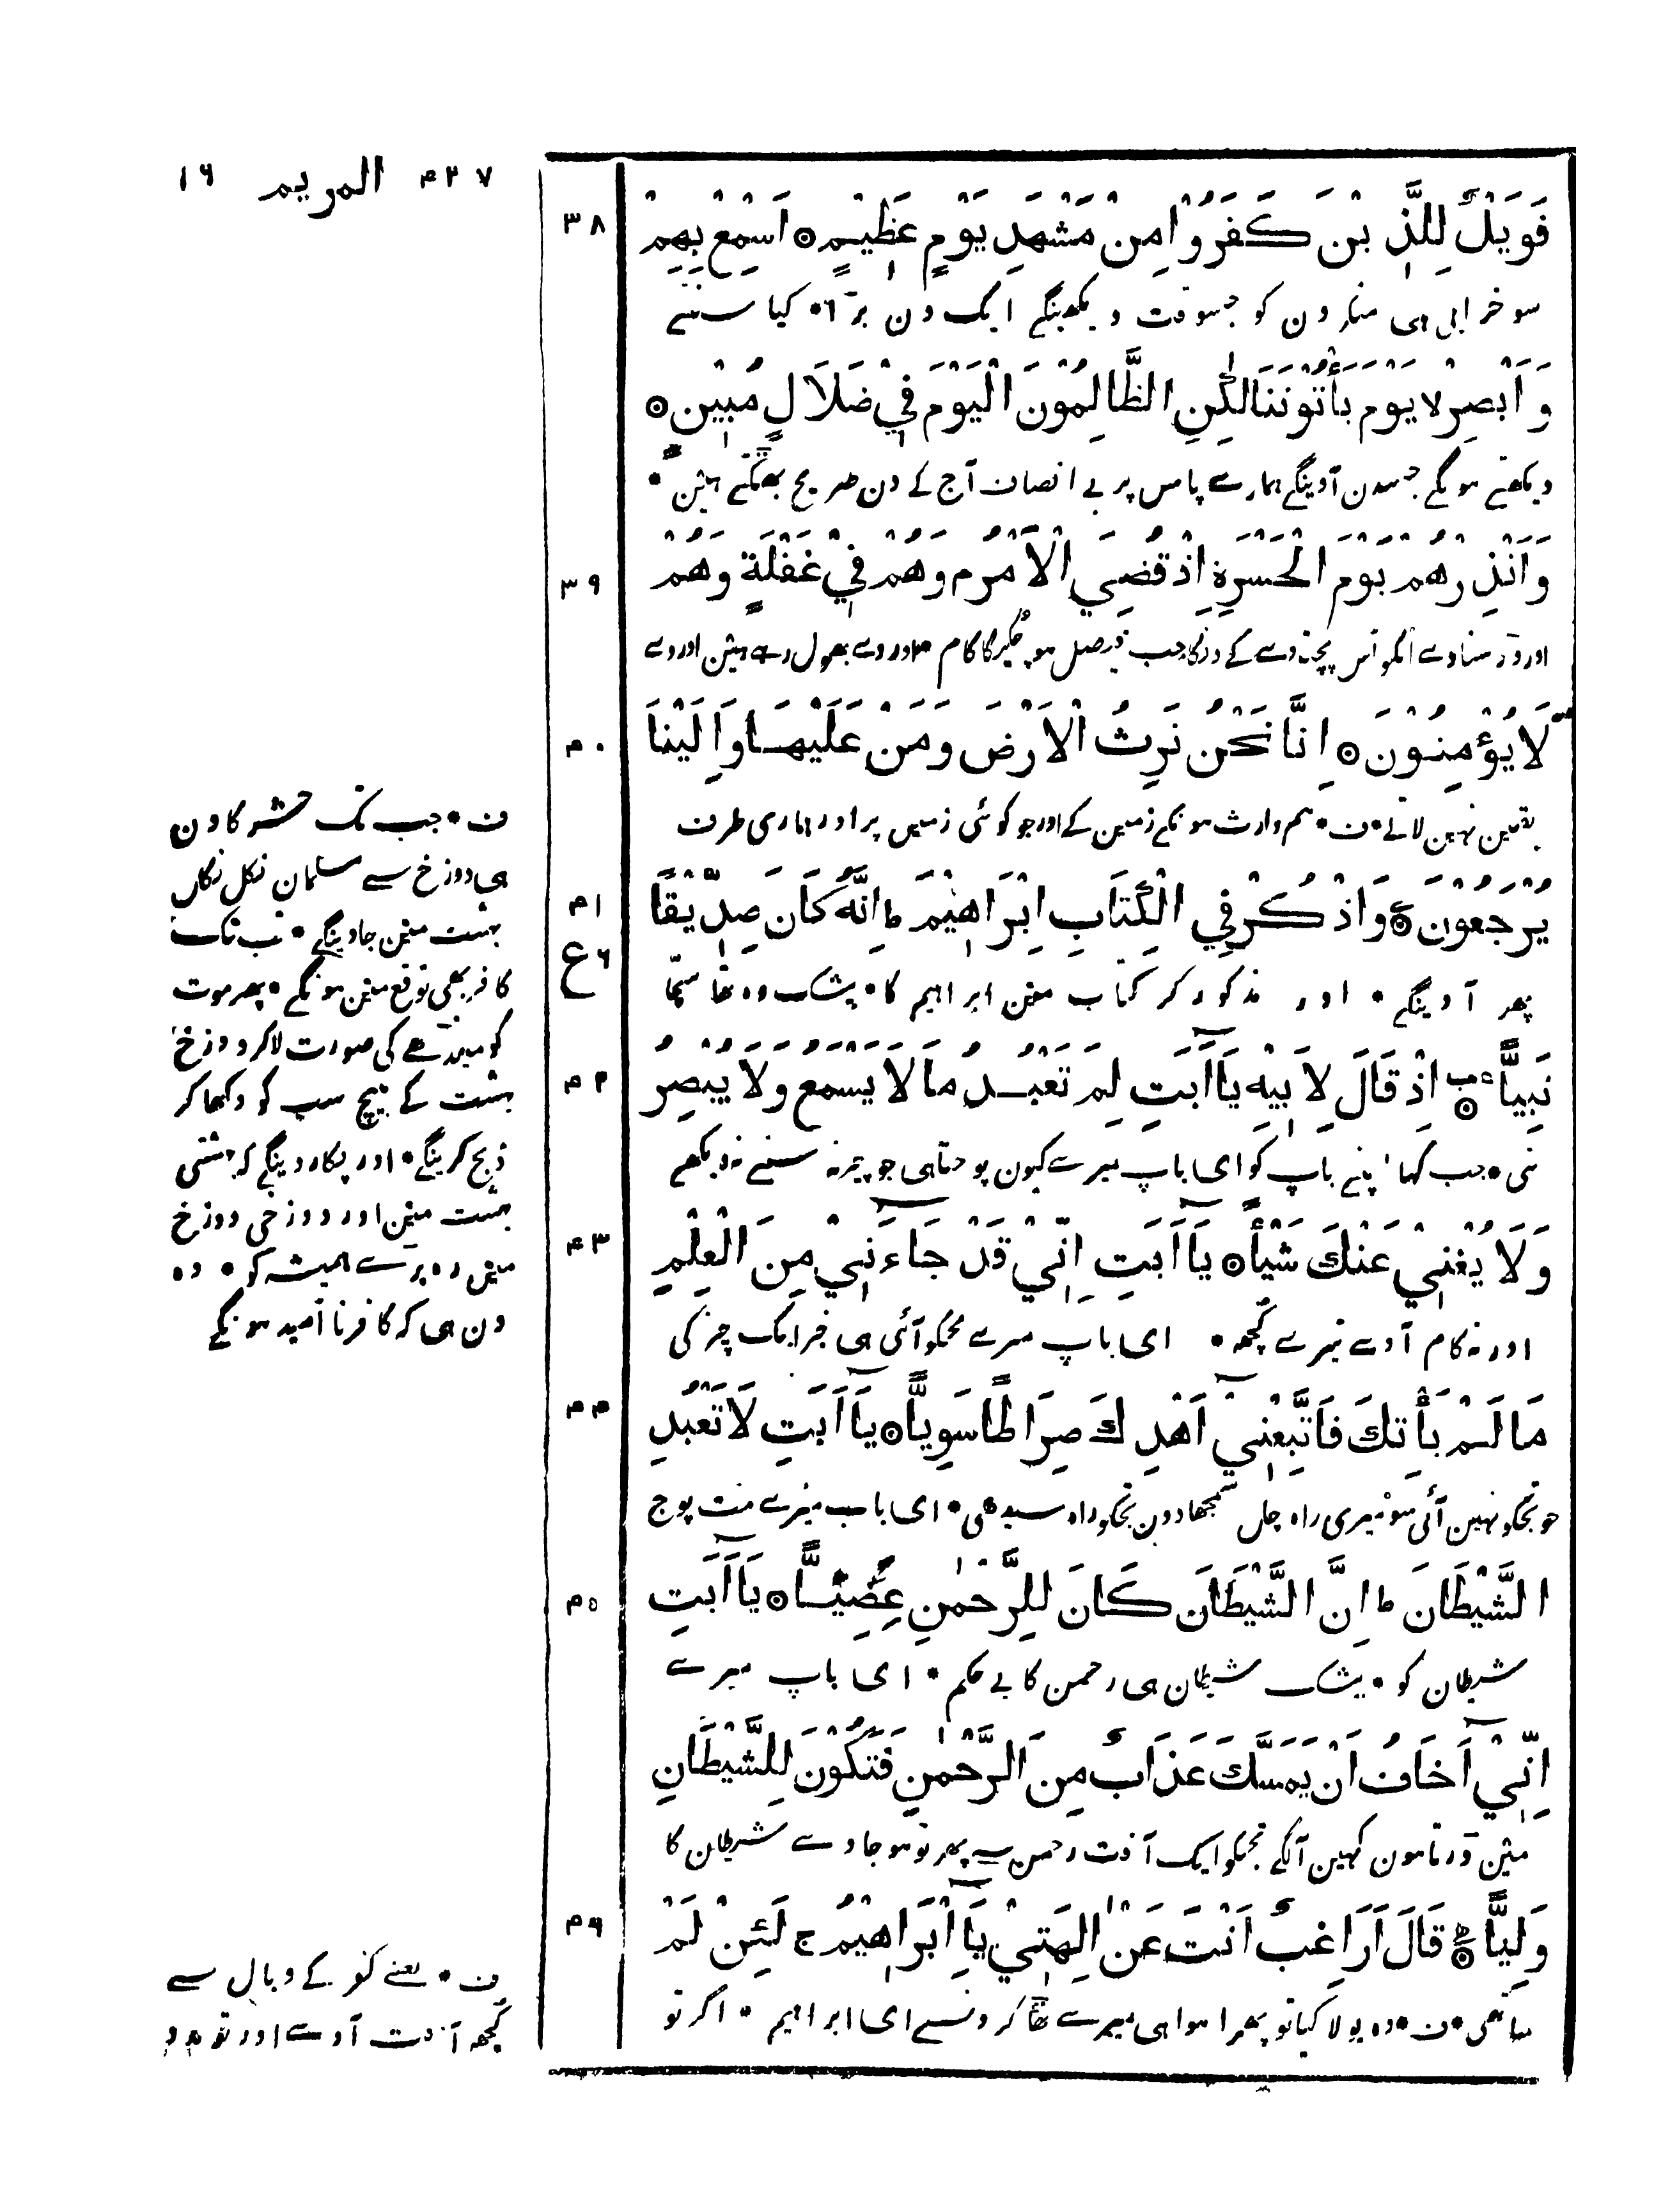 ۴۳۷ المریم ۱۶
۳۸
فَوَيْلٌ لِلَّذِيْنَ كَفَرُوْا مِنْ مَشْهَدِ يَوْمٍ عَظِيْمٍ ۞ اَسْمِعْ بِهِمْ
سو خرابی ہی منکرون کو جسوقت دیکھینگے ایک دن بڑا • کیا سنتے
وَاَبْصِرْ لا يَوْمَ يَأْتُوْنَنَا لٰكِنِ الظَّالِمُوْنَ الْيَوْمَ فِيْ ضَلَالٍ مُبِيْنٍ ۞
دیکھتے ہونگے جسدن آوینگے ہمارے پاس پر بے انصاف آج کے دن صریح بھٹکتے ہین •
۳۹
وَاَنْذِرْهُمْ يَوْمَ الْحَسْرَةِ اِذْ قُضِيَ الْاَمْرُ م وَهُمْ فِيْ غَفْلَةٍ وَهُمْ
اور ڈر سنادے انکو اس پچتاوے کے دنکا جب فیصل ہو چکیگا کام اور وے بھول رہے ہین اور وے
۴۰
لَا يُؤْمِنُوْنَ ۞ اِنَّا نَحْنُ نَرِثُ الْاَرْضَ وَمَنْ عَلَيْهَا وَاِلَيْنَا
یقین نہین لاتے • ف • ہم وارث ہونگے زمین کے اور جو کوئی زمین پر اور ہماری طرف
۴۱
يُرْجَعُوْنَ ۞ وَاذْكُرْ فِي الْكِتَابِ اِبْرَاهِيْمَ ط اِنَّهُ كَانَ صِدِّيْقًا
ع ۶
پھر آوینگے • اور مذکور کر کتاب مین ابراہیم کا • بیشک وہ تھا سچا
۴۲
نَبِيًّا ۞ اِذْ قَالَ لِاَبِيْهِ يَا اَبَتِ لِمَ تَعْبُدُ مَا لَا يَسْمَعُ وَلَا يُبْصِرُ
نبی • جب کہا اپنے باپ کو ای باپ میرے کیون پوجتا ہی جو چیز نہ سنے نہ دیکھے
۴۳
وَلَا يُغْنِيْ عَنْكَ شَيْأً ۞ يَا اَبَتِ اِنِّيْ قَدْ جَاءَنِيْ مِنَ الْعِلْمِ
اور نہ کام آوے تیرے کچھ • ای باپ میرے مجکو آئی ہی خبر ایک چیز کی
۴۴
مَا لَمْ يَأْتِكَ فَاتَّبِعْنِيْ اَهْدِكَ صِرَاطًا سَوِيًّا ۞ يَا اَبَتِ لَا تَعْبُدِ
جو تجکو نہین آئی سو میری راہ چل سمجھادون تجکو راہ سیدھی • ای باپ میرے مت پوج
۴۵
الشَّيْطَانَ ط اِنَّ الشَّيْطَانَ كَانَ لِلرَّحْمٰنِ عَصِيًّا ۞ يَا اَبَتِ
شیطان کو • بیشک شیطان ہی رحمن کا بے حکم • ای باپ میرے
اِنِّيْ اَخَافُ اَنْ يَمَسَّكَ عَذَابٌ مِنَ الرَّحْمٰنِ فَتَكُوْنَ لِلشَّيْطَانِ
مین ڈرتا ہون کہین آلگے تجکو ایک آفت رحمن سے پھر تو ہو جاوے شیطان کا
۴۶
وَلِيًّا ۞ قَالَ اَرَاغِبٌ اَنْتَ عَنْ اٰلِهَتِيْ يَا اِبْرَاهِيْمُ ج لَئِنْ لَمْ
ساتھی • ف • وہ بولا کیا تو پھرا ہوا ہی میرے ٹھاکرونسے ای ابراہیم • اگر تو
ف • جب تک حشر کا دن
ہی دوزخ سے مسلمان نکل نکل
بہشت مین جاوینگے • تب تک
کافر بھی توقع مین ہونگے • پھر موت
کو مینڈھے کی صورت لاکر دوزخ
بہشت کے بیچ سب کو دکھا کر
ذبح کرینگے • اور پکار دینگے کہ بہشتی
بہشت مین اور دوزخی دوزخ
مین رہ پڑے ہمیشہ کو • وہ
دن ہی کہ کافر نا امید ہونگے
ف • یعنے کفر کے وبال سے
کچھ آفت آوے اور تو مدد